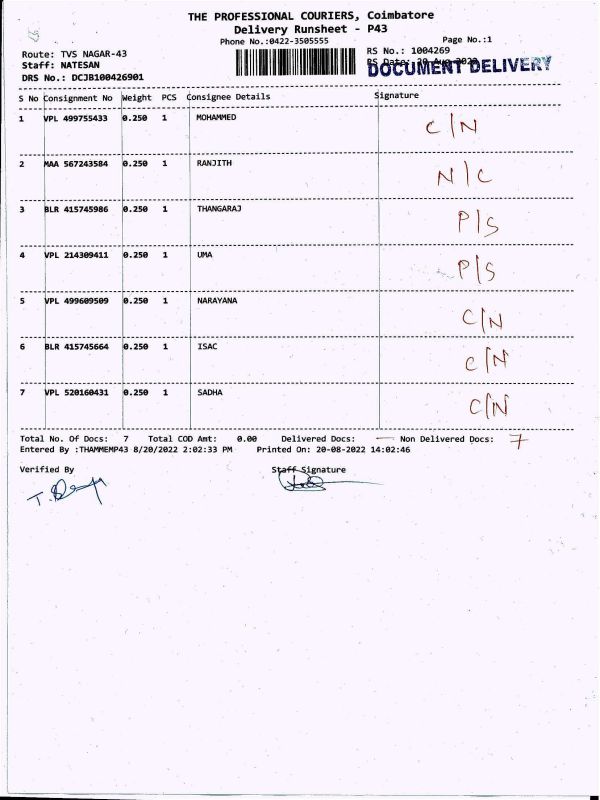 THE PROFESSIONAL COURIERS, Coimbatore
Delivery Runsheet - P43
Phone No.:0422-3505555 Page No.:1
Route: TVS NAGAR-43 RS No.: 1004269
Staff: NATESAN RS Date: 20 Aug 2022
DOCUMENT DELIVERY
DRS No.: DCJB100426901
S No Consignment No Weight PCS Consignee Details Signature
1 VPL 499755433 0.250 1 MOHAMMED C/N
2 MAA 567243584 0.250 1 RANJITH N/C
3 BLR 415745986 0.250 1 THANGARAJ P/S
4 VPL 214309411 0.250 1 UMA P/S
5 VPL 499609509 0.250 1 NARAYANA C/N
6 BLR 415745664 0.250 1 ISAC C/N
7 VPL 520160431 0.250 1 SADHA C/N
Total No. Of Docs: 7 Total COD Amt: 0.00 Delivered Docs: — Non Delivered Docs: 7
Entered By :THAMMEMP43 8/20/2022 2:02:33 PM Printed On: 20-08-2022 14:02:46
Verified By Staff Signature